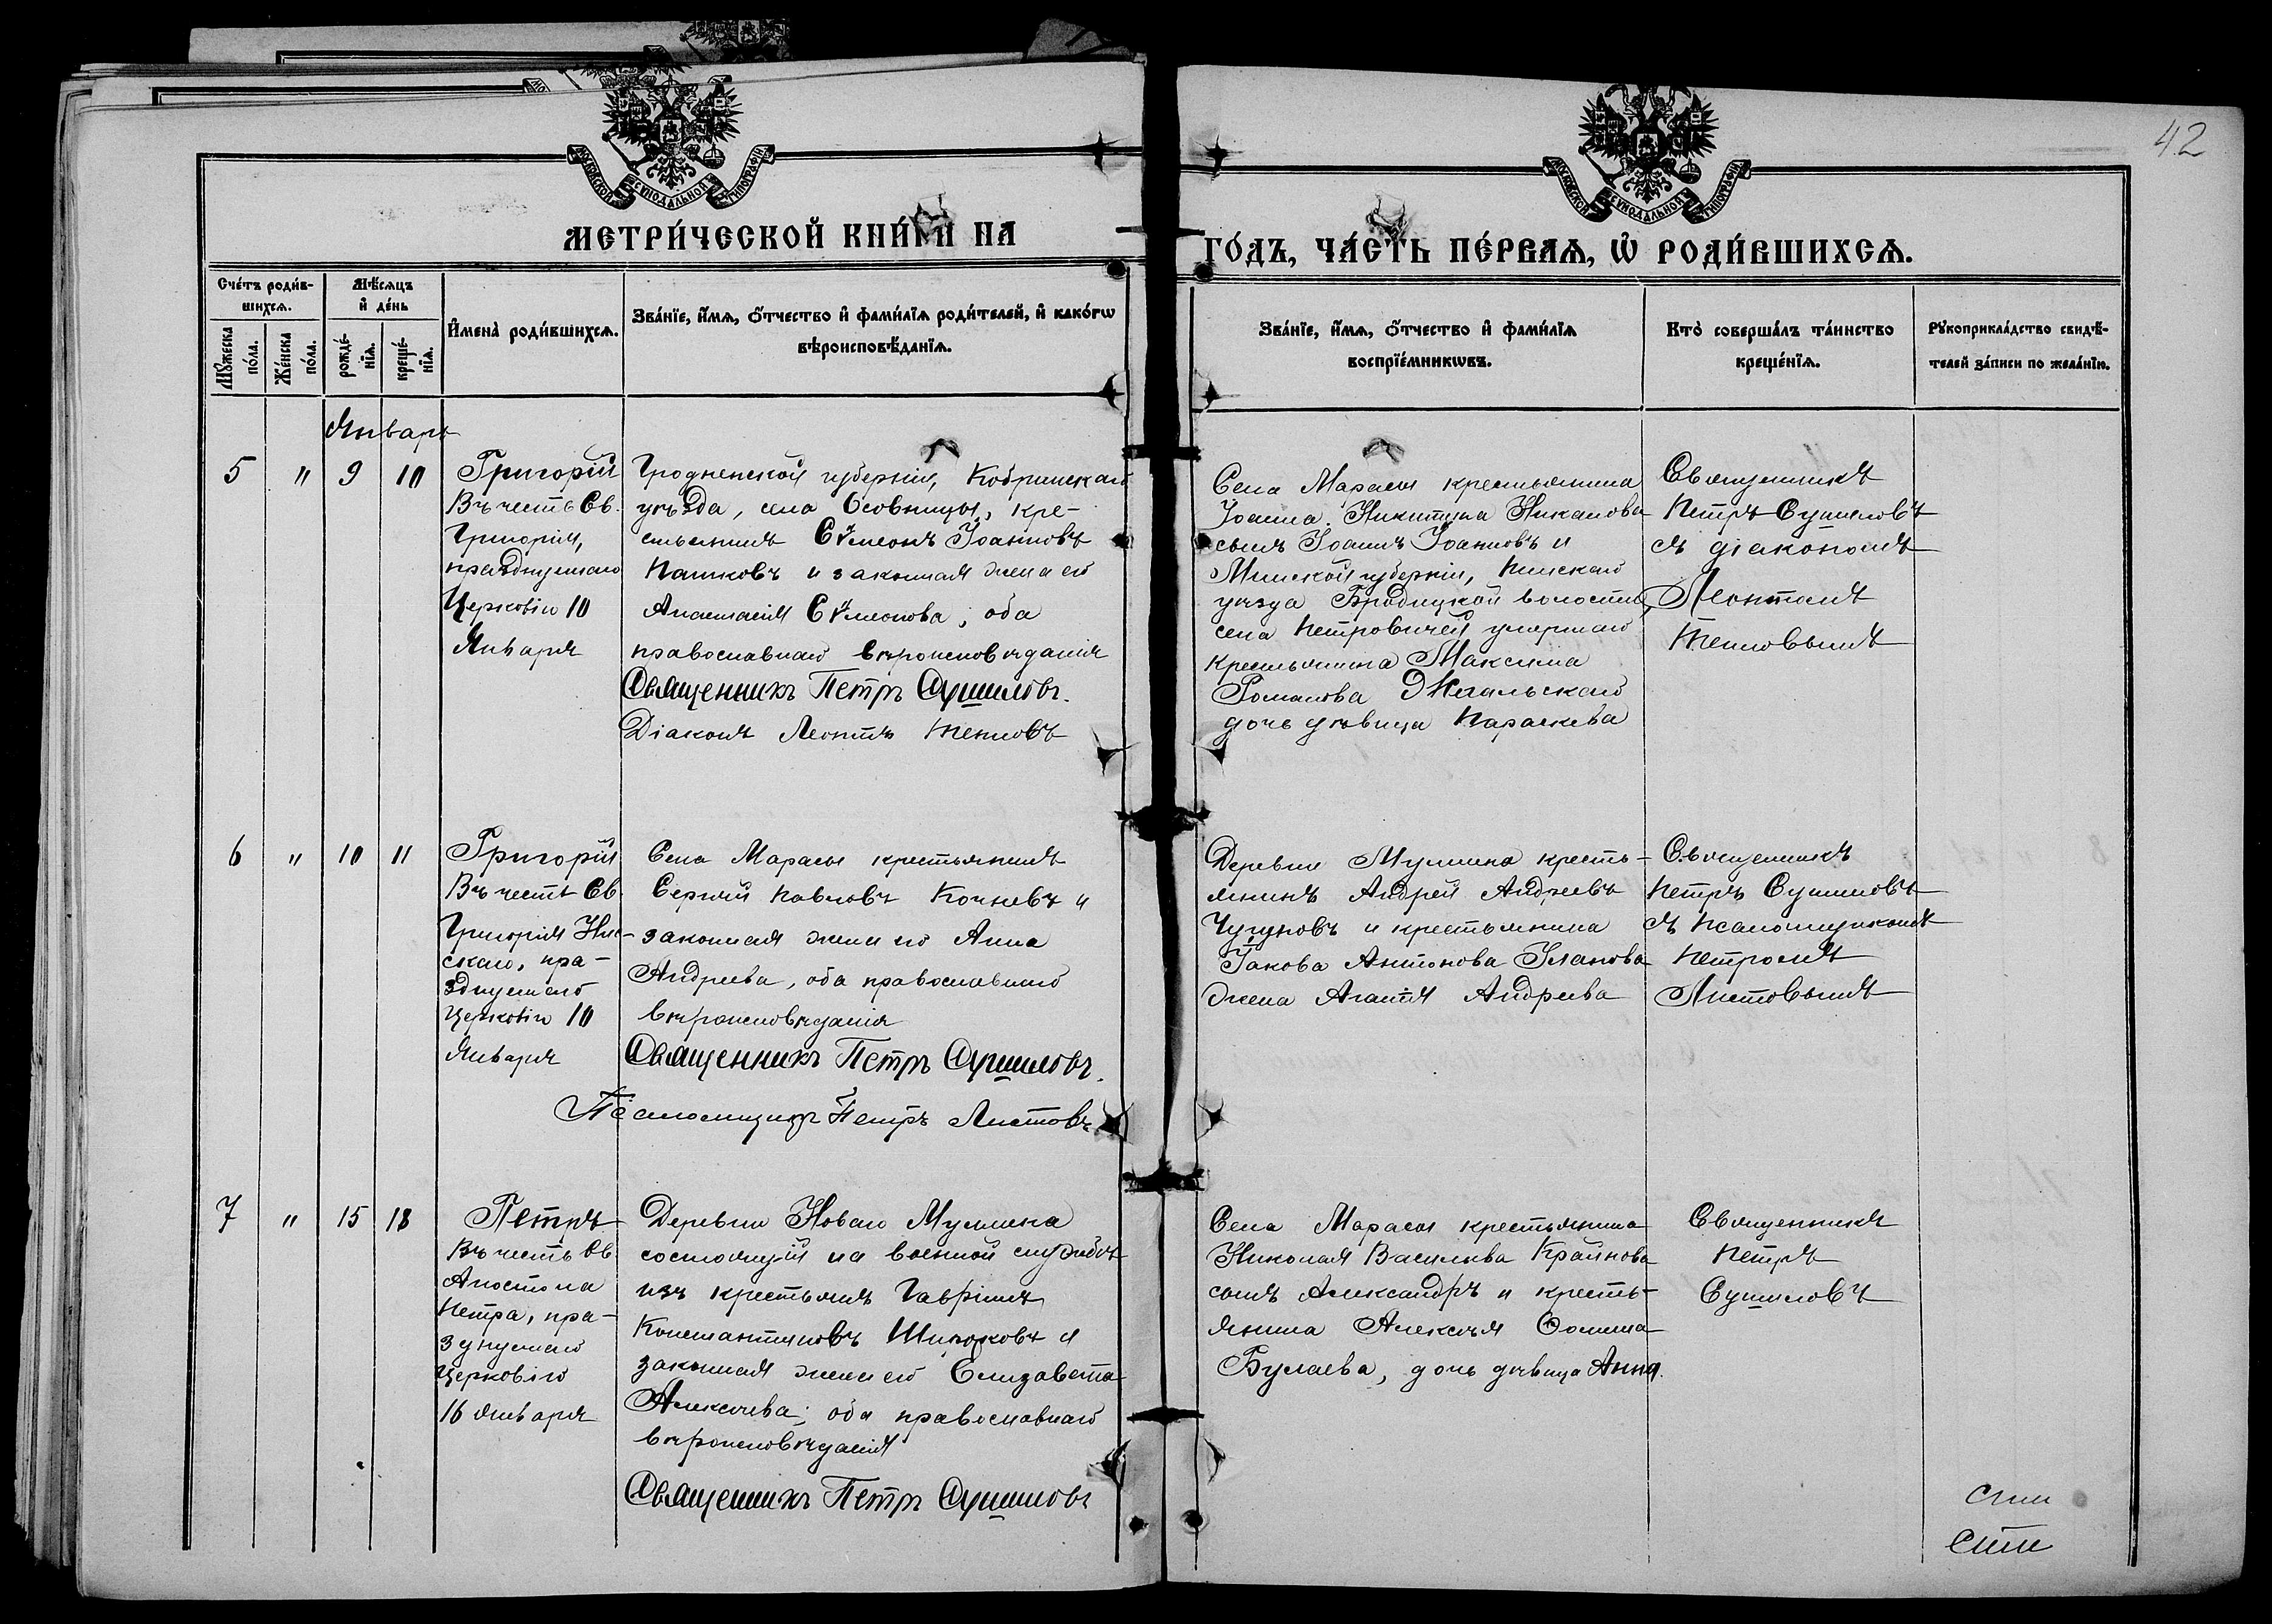 42
МОСКОВСКОЙ СѴНОДАЛЬНОЙ ТИПОГРАФІИ
МОСКОВСКОЙ СѴНОДАЛЬНОЙ ТИПОГРАФІИ
МЕТРИ́ЧЕСКОЙ КНИ́ГИ НА
ГО́ДЪ, ЧА́СТЬ ПЕ́РВАѦ, Ѡ҆ РОДИ́ВШИХСѦ.
Сче́тъ роди́в-
шихсѧ.
Мѣ́сяцъ
и҆ де́нь
Мꙋ́жеска
по́ла.
Же́нска
по́ла.
рожде́-
нїѧ.
креще́-
нїѧ.
И҆мена̀ роди́вшихсѧ.
Зва́нїе, и҆́мѧ, ѻ҆́тчество и҆ фами́лїѧ роди́телей, и҆ како́гѡ
вѣроисповѣ́данїѧ.
Зва́нїе, и҆́мѧ, ѻ҆́тчество и҆ фами́лїѧ
воспрїе́мникѡвъ.
Кто̀ соверша́лъ та́инство
креще́нїѧ.
Рꙋкоприкла́дство свидѣ́-
телей за́писи по жела́нїю.
Январь
5 " 9 10
Григорій
Въ честь Св.
Григорія,
празднуемаго
Церковію 10
Января
Гродненской губерніи, Кобринскаго
уѣзда, села Осовницы, кре-
стьянинъ Сѵмеонъ Іоанновъ
Пашковъ и законная жена его
Анастасія Сѵмеонова; оба
православнаго вѣроисповѣданія
Священникъ Петръ Сушиловъ.
Діаконъ Леонтій Тепловъ
Села Марасы крестьянина
Іоанна Никитина Никанова
сынъ Іоаннъ Іоанновъ и
Минской губерніи, Пинскаго
уѣзда Бродницкой волости,
села Петровичей умершаго
крестьянина Максима
Романова
дочь дѣвица Параскева
Священникъ
Петръ Сушиловъ
съ діакономъ
Леонтіемъ
Тепловымъ
6 " 10 11
Григорій
Въ честь Св.
Григорія Нис-
скаго, пра-
зднуемаго
Церковію 10
Января
Села Марасы крестьянинъ
Сергій Павловъ Кочневъ и
законная жена его Анна
Андреева, оба православнаго
вѣроисповѣданія
Священникъ Петръ Сушиловъ.
Псаломщикъ Петръ Листовъ
Деревни Муллина кресть-
янинъ Андрей Андреевъ
Чугуновъ и крестьянина
Іакова Антонова Уланова
жена Агапія Андреева
Священникъ
Петръ Сушиловъ
съ псаломщикомъ
Петромъ
Листовымъ
7 " 15 18
Петръ
Въ честь Св.
Апостола
Петра, пра-
зднуемаго
Церковію
16 января
Деревни Новаго Муллина
состоящій на военной службѣ
изъ крестьянъ Гавріилъ
Константиновъ Широковъ и
законная жена его Елизавета
Алексѣева; оба православнаго
вѣроисповѣданія
Священникъ Петръ Сушиловъ
Села Марасы крестьянина
Николая Васильева Крайнова
сынъ Александръ и кресть-
янина Алексѣя Ѳомина
Булаева, дочь дѣвица Анна.
Священникъ
Петръ
Сушиловъ